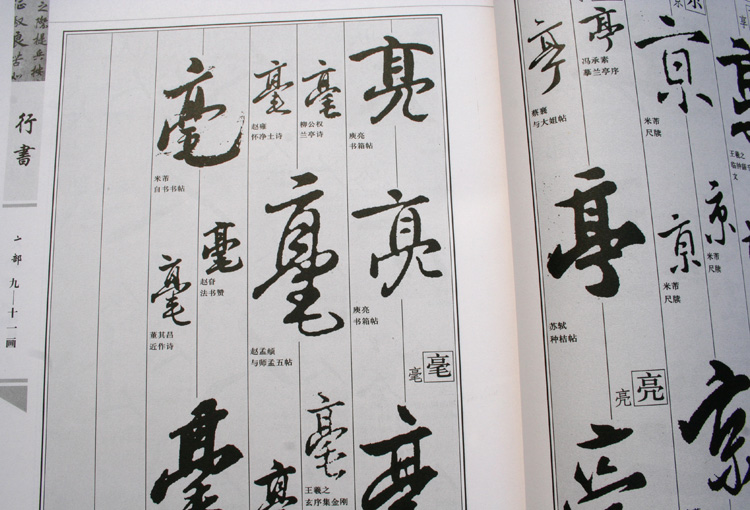 行書
亠部 九—十一画
京
米芾
尺牍
京
米芾
尺牍
京
米芾
尺牍
京
王羲之
文
亭
冯承素
摹兰亭序
亭
蔡襄
与大姐帖
亭
苏轼
种桔帖
亮
亮
亮
庾亮
书箱帖
亮
庾亮
书箱帖
毫
毫
亳
毫
柳公权
兰亭诗
毫
赵雍
怀净土诗
毫
赵孟頫
与师孟五帖
毫
王羲之
玄序集金刚
毫
米芾
自书书帖
毫
赵眘
法书赞
毫
董其昌
近作诗